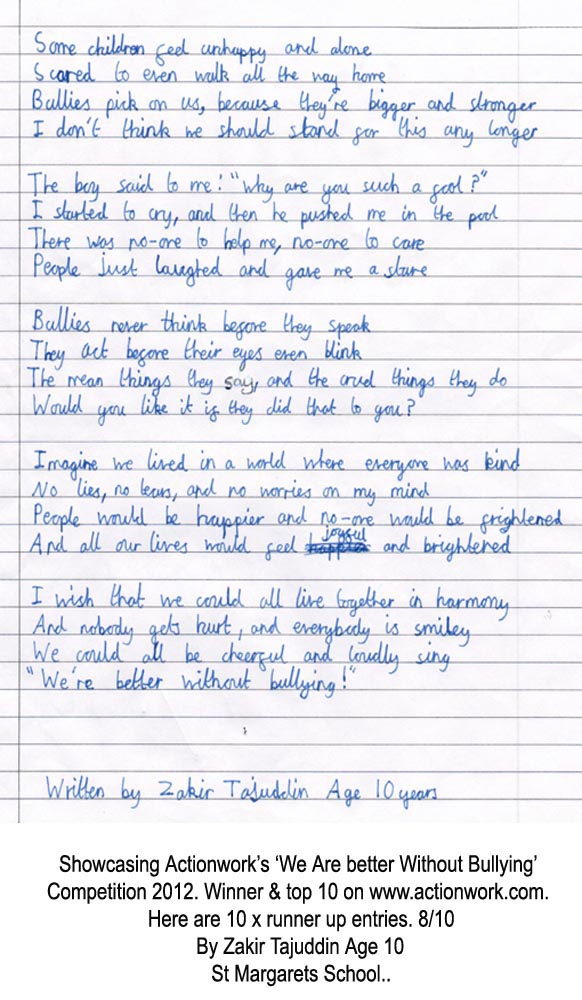 Some children feel unhappy and alone
Scared to even walk all the way home
Bullies pick on us, because they're bigger and stronger
I don't think we should stand for this any longer
The boy said to me: "Why are you such a fool?"
I started to cry, and then he pushed me in the pool
There was no-one to help me, no-one to care
People just laughed and gave me a stare
Bullies never think before they speak
They act before their eyes even blink
The mean things they say, and the cruel things they do
Would you like it if they did that to you?
Imagine we lived in a world where everyone was kind
No lies, no tears, and no worries on my mind
People would be happier and no-one would be frightened
And all our lives would feel joyful and brightened
I wish that we could all live together in harmony
And nobody gets hurt, and everybody is smiley
We could all be cheerful and loudly sing
"We're better without bullying!"
Written by Zakir Tajuddin Age 10 years
Showcasing Actionwork's 'We Are better Without Bullying'
Competition 2012. Winner & top 10 on www.actionwork.com.
Here are 10 x runner up entries. 8/10
By Zakir Tajuddin Age 10
St Margarets School..